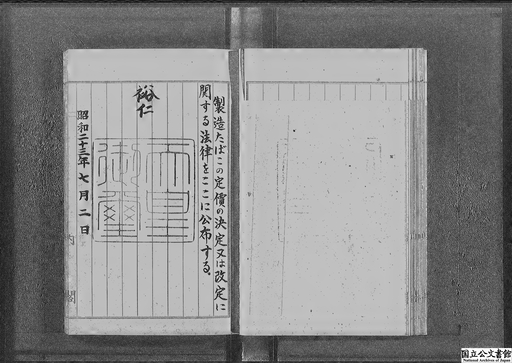 製造たばこの定價の決定又は改定に
関する法律をここに公布する。
裕仁
天皇
御璽
昭和二十三年七月二日
内閣
国立公文書館
National Archives of Japan